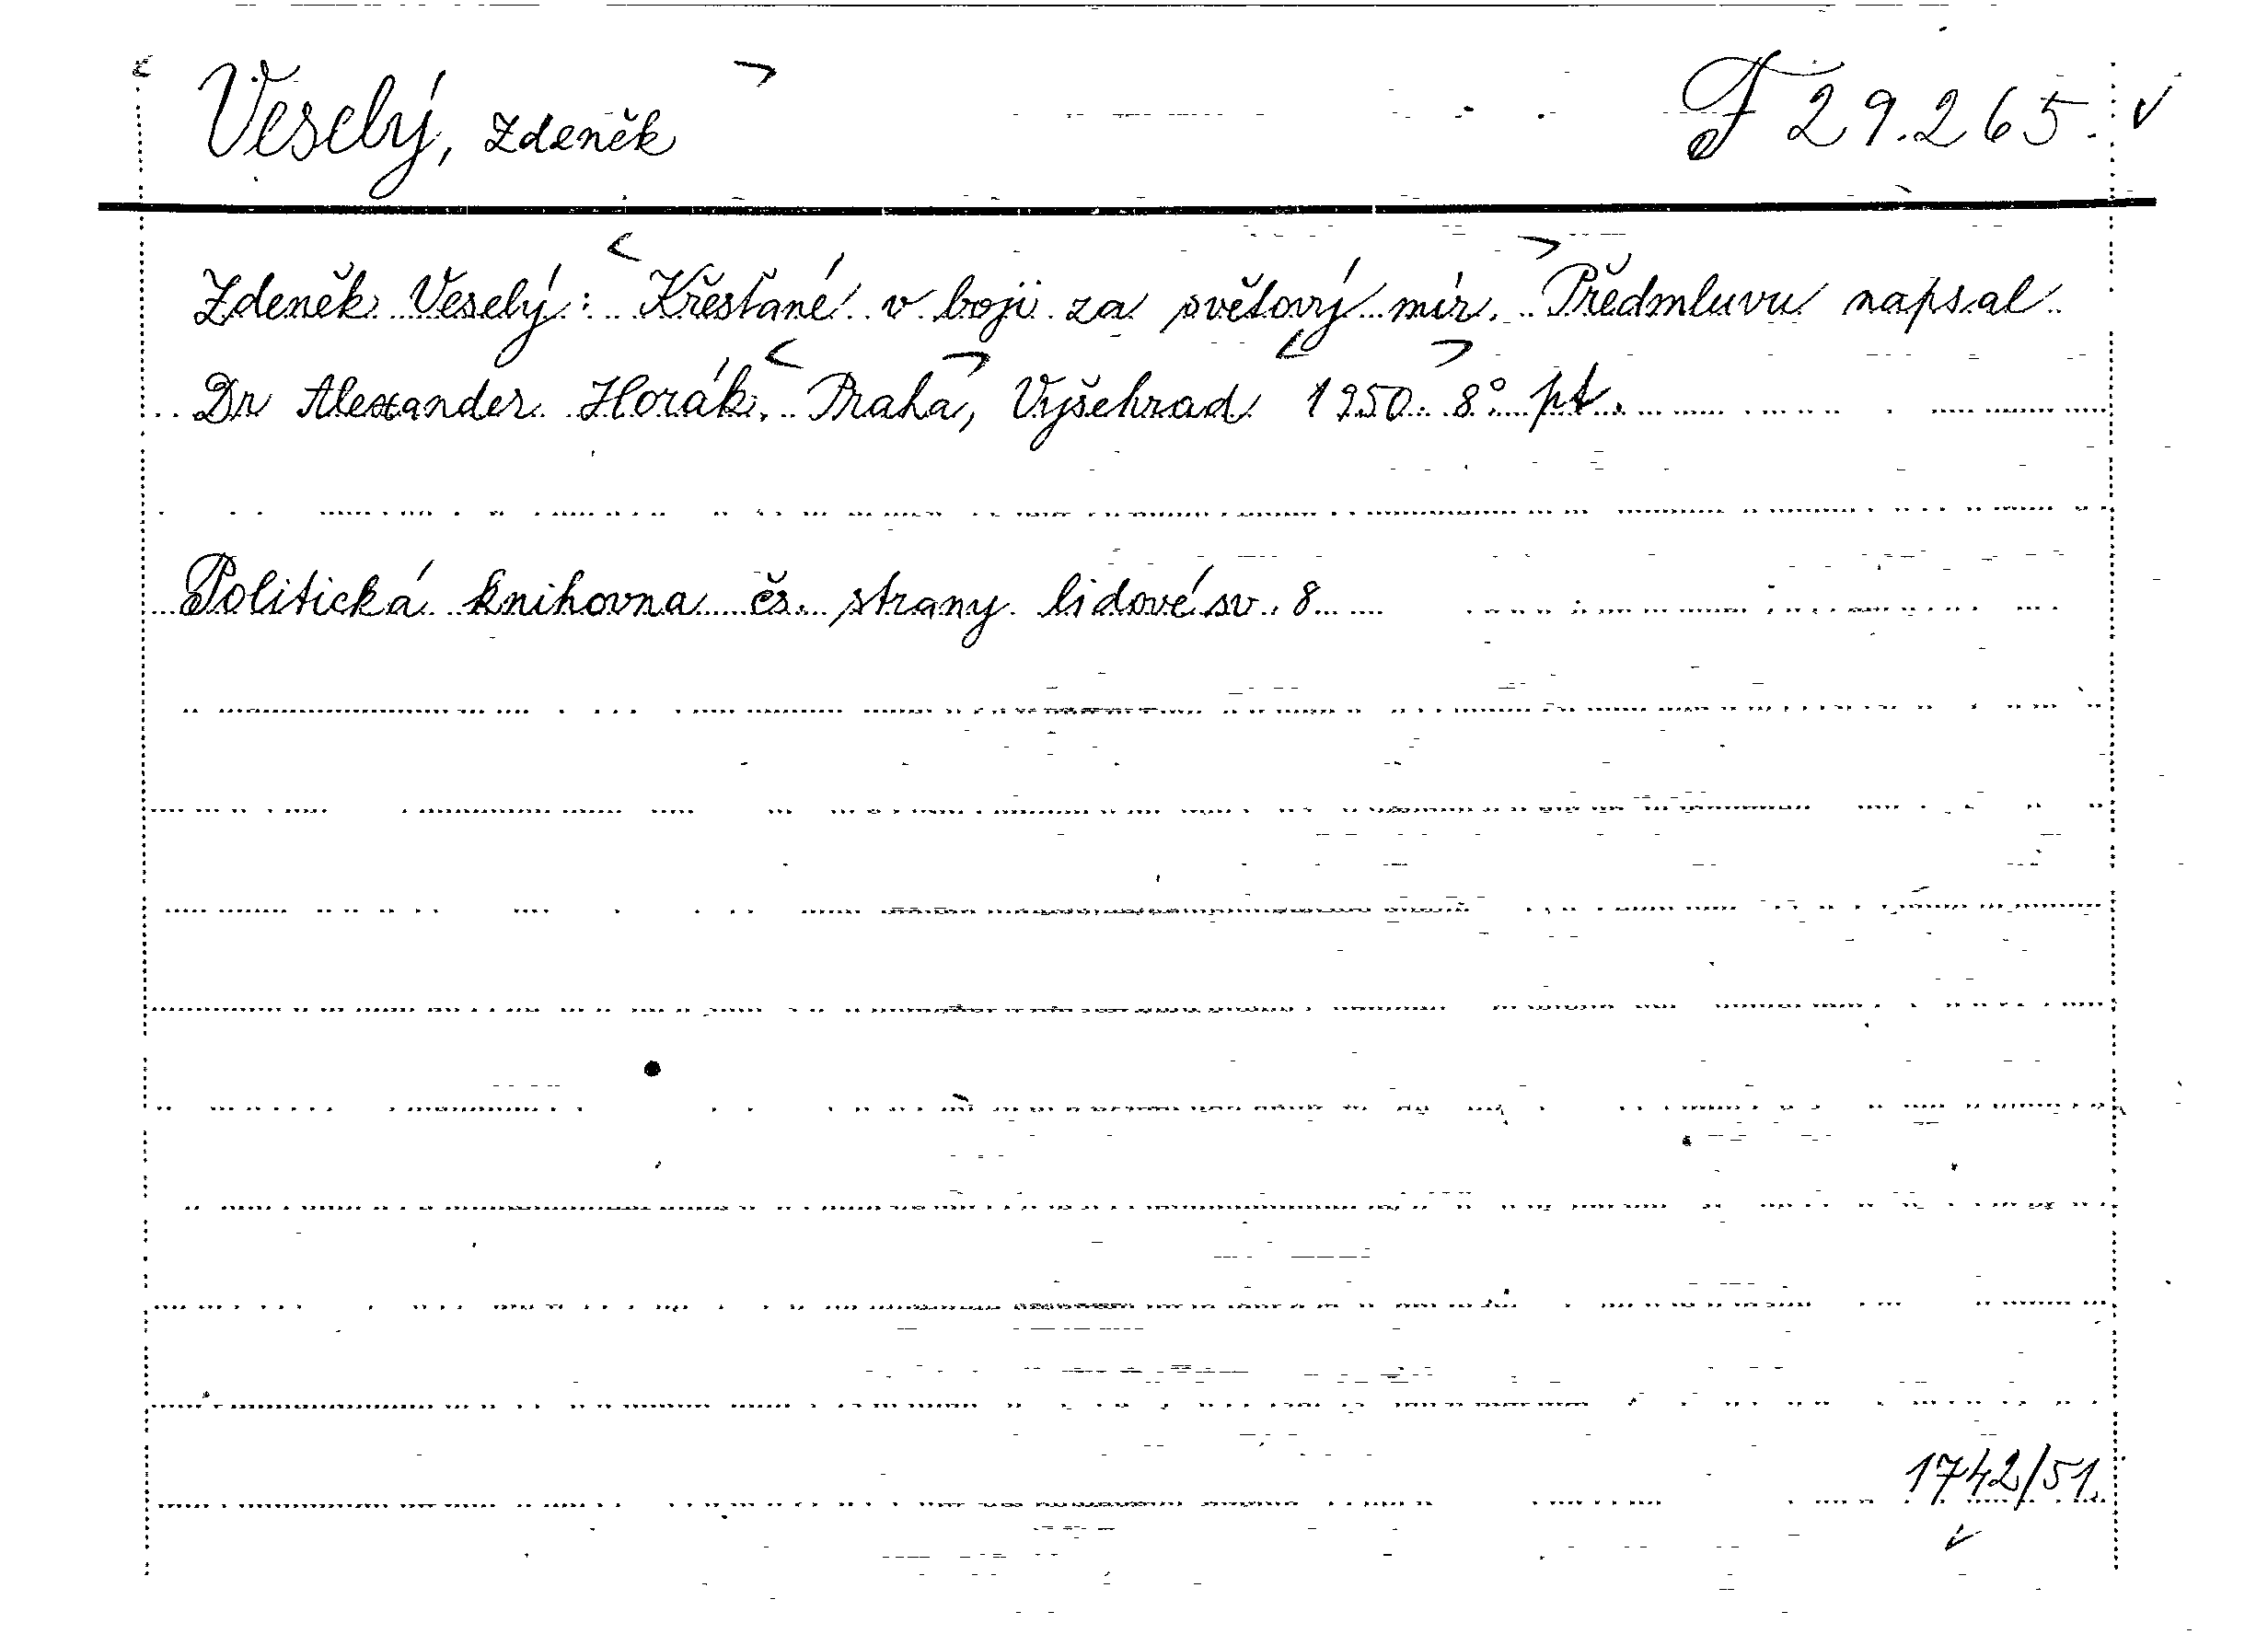 Veselý, Zdeněk F 29.265.
Zdeněk Veselý: Křesťané v boji za světový mír. Předmluvu napsal
Dr Alexander Horák. Praha, Vyšehrad 1950. 8° pt.
Politická knihovna čs. strany lidové sv. 8
1742/51.